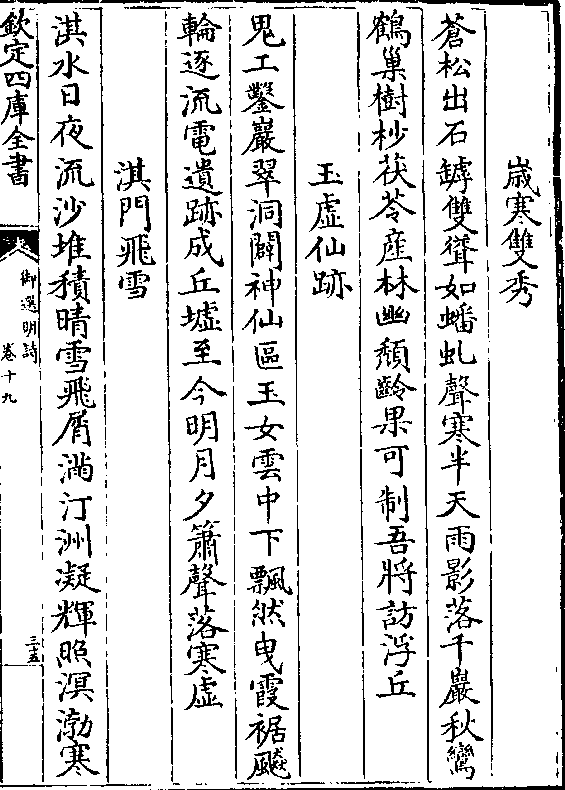 歳寒雙秀
蒼松出石罅雙聳如蟠虬聲寒半天雨影落千巖秋鸞
鶴巢樹杪茯苓産林幽頽齡果可制吾將訪浮丘
玉虛仙跡
鬼工鑿巖翠洞闢神仙區玉女雲中下飄然曳霞裾飇
輪逐流電遺跡成丘墟至今明月夕簫聲落寒虛
淇門飛雪
淇水日夜流沙堆積晴雪飛屑滿汀洲凝輝照溟渤寒
欽定四庫全書
御選明詩
卷十九
三十五